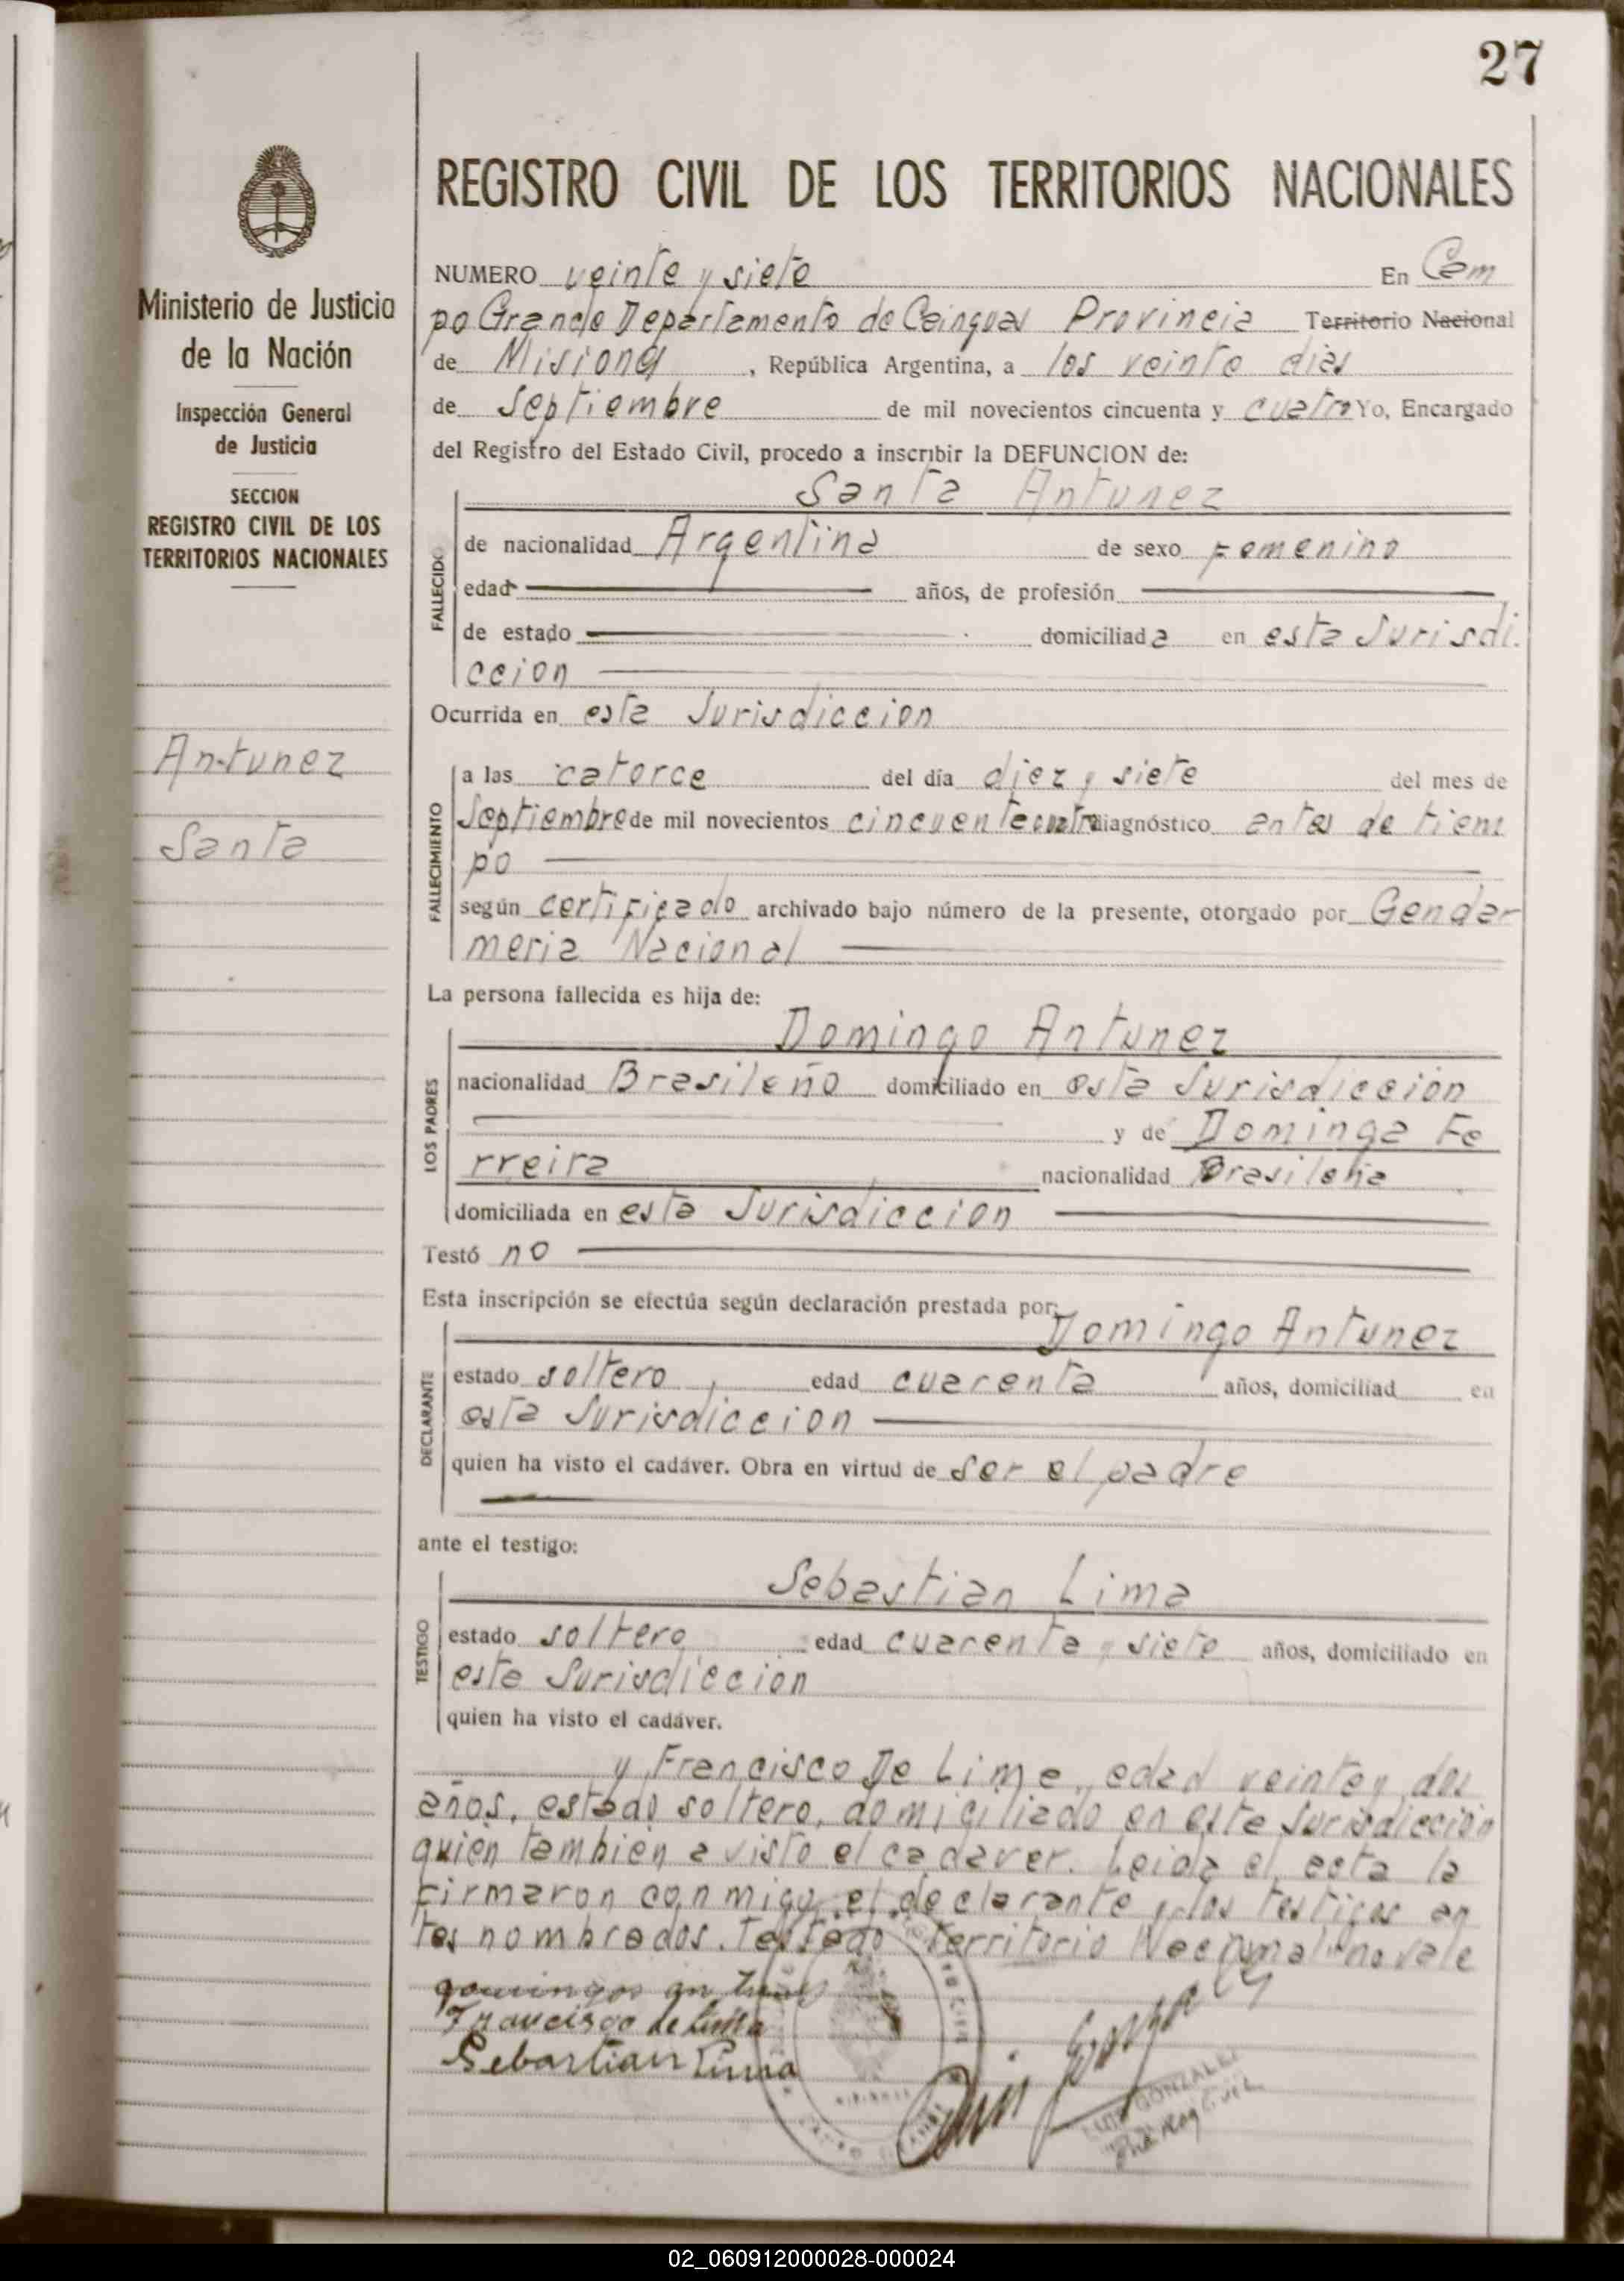 27
REGISTRO CIVIL DE LOS TERRITORIOS NACIONALES
Ministerio de Justicia
de la Nación
Inspección General
de Justicia
SECCION
REGISTRO CIVIL DE LOS
TERRITORIOS NACIONALES
Antunez
Santa
NUMERO veinte y siete En Cam
po Grande Departamento de Cainguas Provincia Territorio Nacional
de Misiones, República Argentina, a los veinte dias
de Septiembre de mil novecientos cincuenta y cuatro Yo, Encargado
del Registro del Estado Civil, procedo a inscribir la DEFUNCION de:
FALLECIDO
Santa Antunez
de nacionalidad Argentina de sexo femenino
edad años, de profesión
de estado domiciliada en esta Jurisdi
ccion
Ocurrida en esta Jurisdiccion
FALLECIMIENTO
a las catorce del día diez y siete del mes de
Septiembre de mil novecientos cincuenta cuatro diagnóstico antes de tiem
po
según certificado archivado bajo número de la presente, otorgado por Gendar
meria Nacional
La persona fallecida es hija de:
LOS PADRES
Domingo Antunez
nacionalidad Brasileño domiciliado en esta Jurisdiccion
y de Dominga Fe
rreira nacionalidad Brasileña
domiciliada en esta Jurisdiccion
Testó no
Esta inscripción se efectúa según declaración prestada por:
DECLARANTE
Domingo Antunez
estado soltero, edad cuarenta años, domiciliad en
esta Jurisdiccion
quien ha visto el cadáver. Obra en virtud de ser el padre
ante el testigo:
TESTIGO
Sebastian Lima
estado soltero edad cuarenta y siete años, domiciliado en
esta Jurisdiccion
quien ha visto el cadáver.
y Francisco De Lima, edad veinte y dos
años, estado soltero, domiciliado en esta Jurisdiccion
quien tambien a visto el cadaver. Leida el acta la
firmaron conmigo el declarante y los testigos an
tes nombrados. Testado Territorio Nacional no vale
domingos antunes
Francisco de Lima
Sebastian Lima
GONZALEZ
02_060912000028-000024